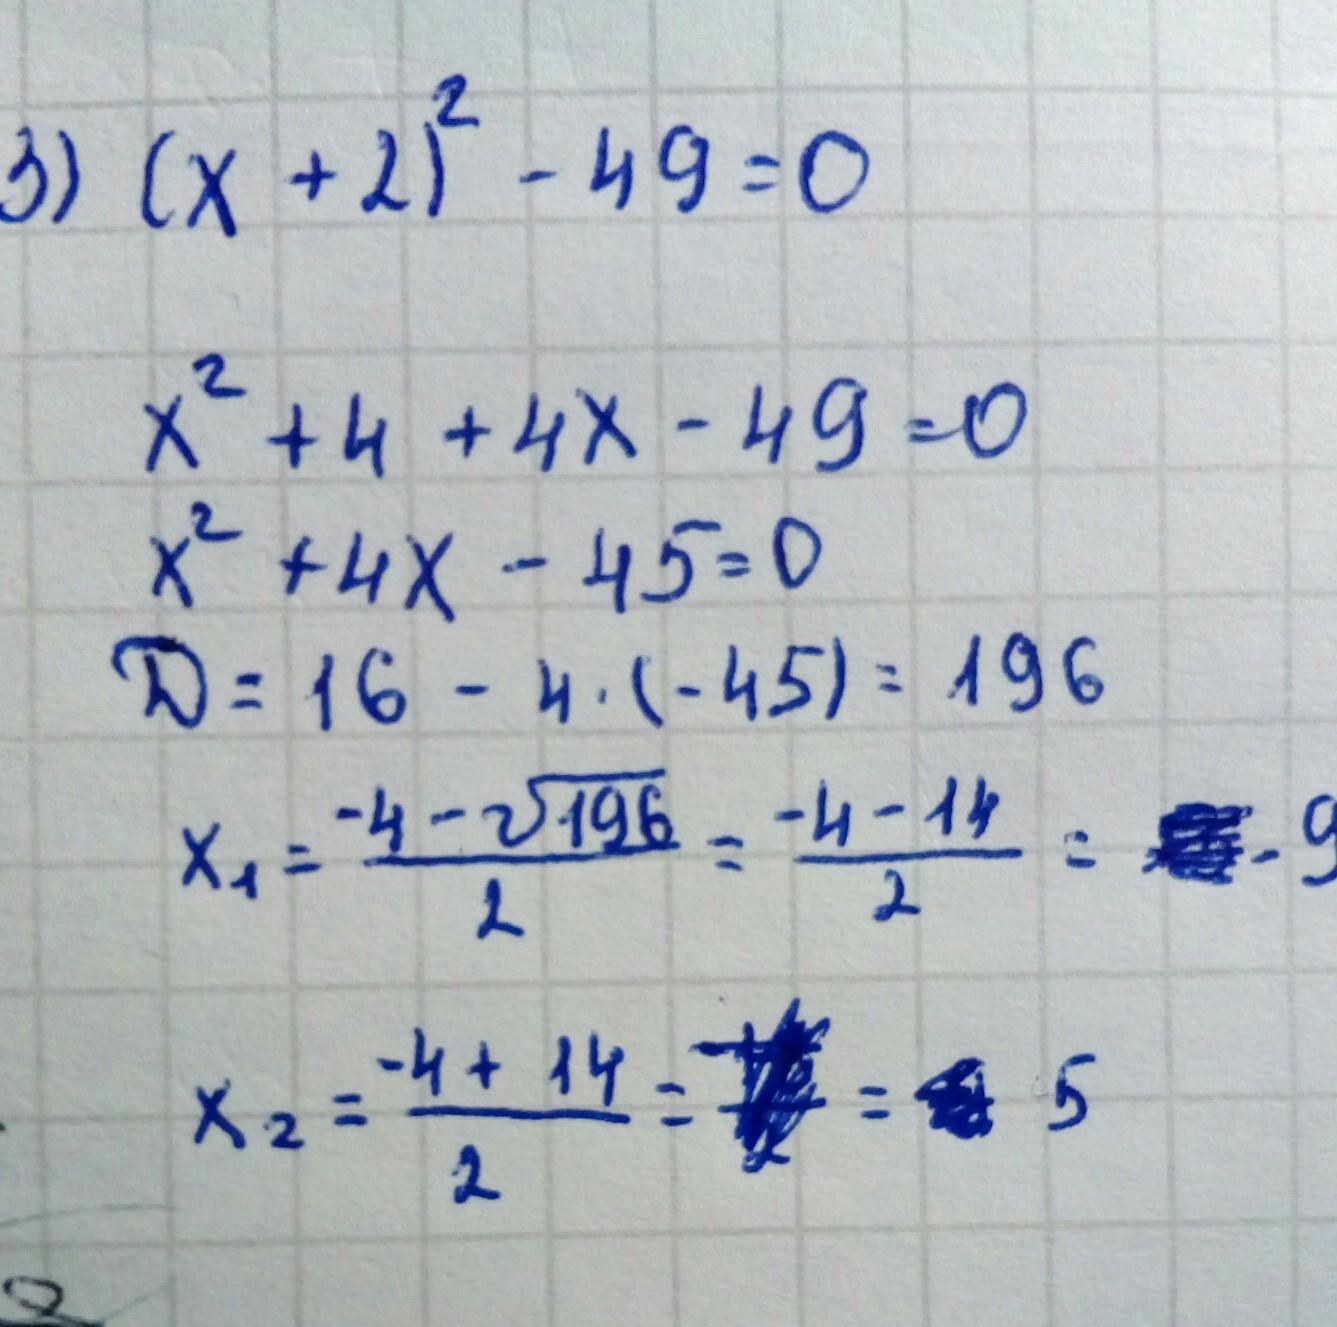 3) (x + 2)² - 49 = 0
x² + 4 + 4x - 49 = 0
x² + 4x - 45 = 0
D = 16 - 4 · (-45) = 196
x₁ = (-4 - √196)/2 = (-4 - 14)/2 = -9
x₂ = (-4 + 14)/2 = = 5